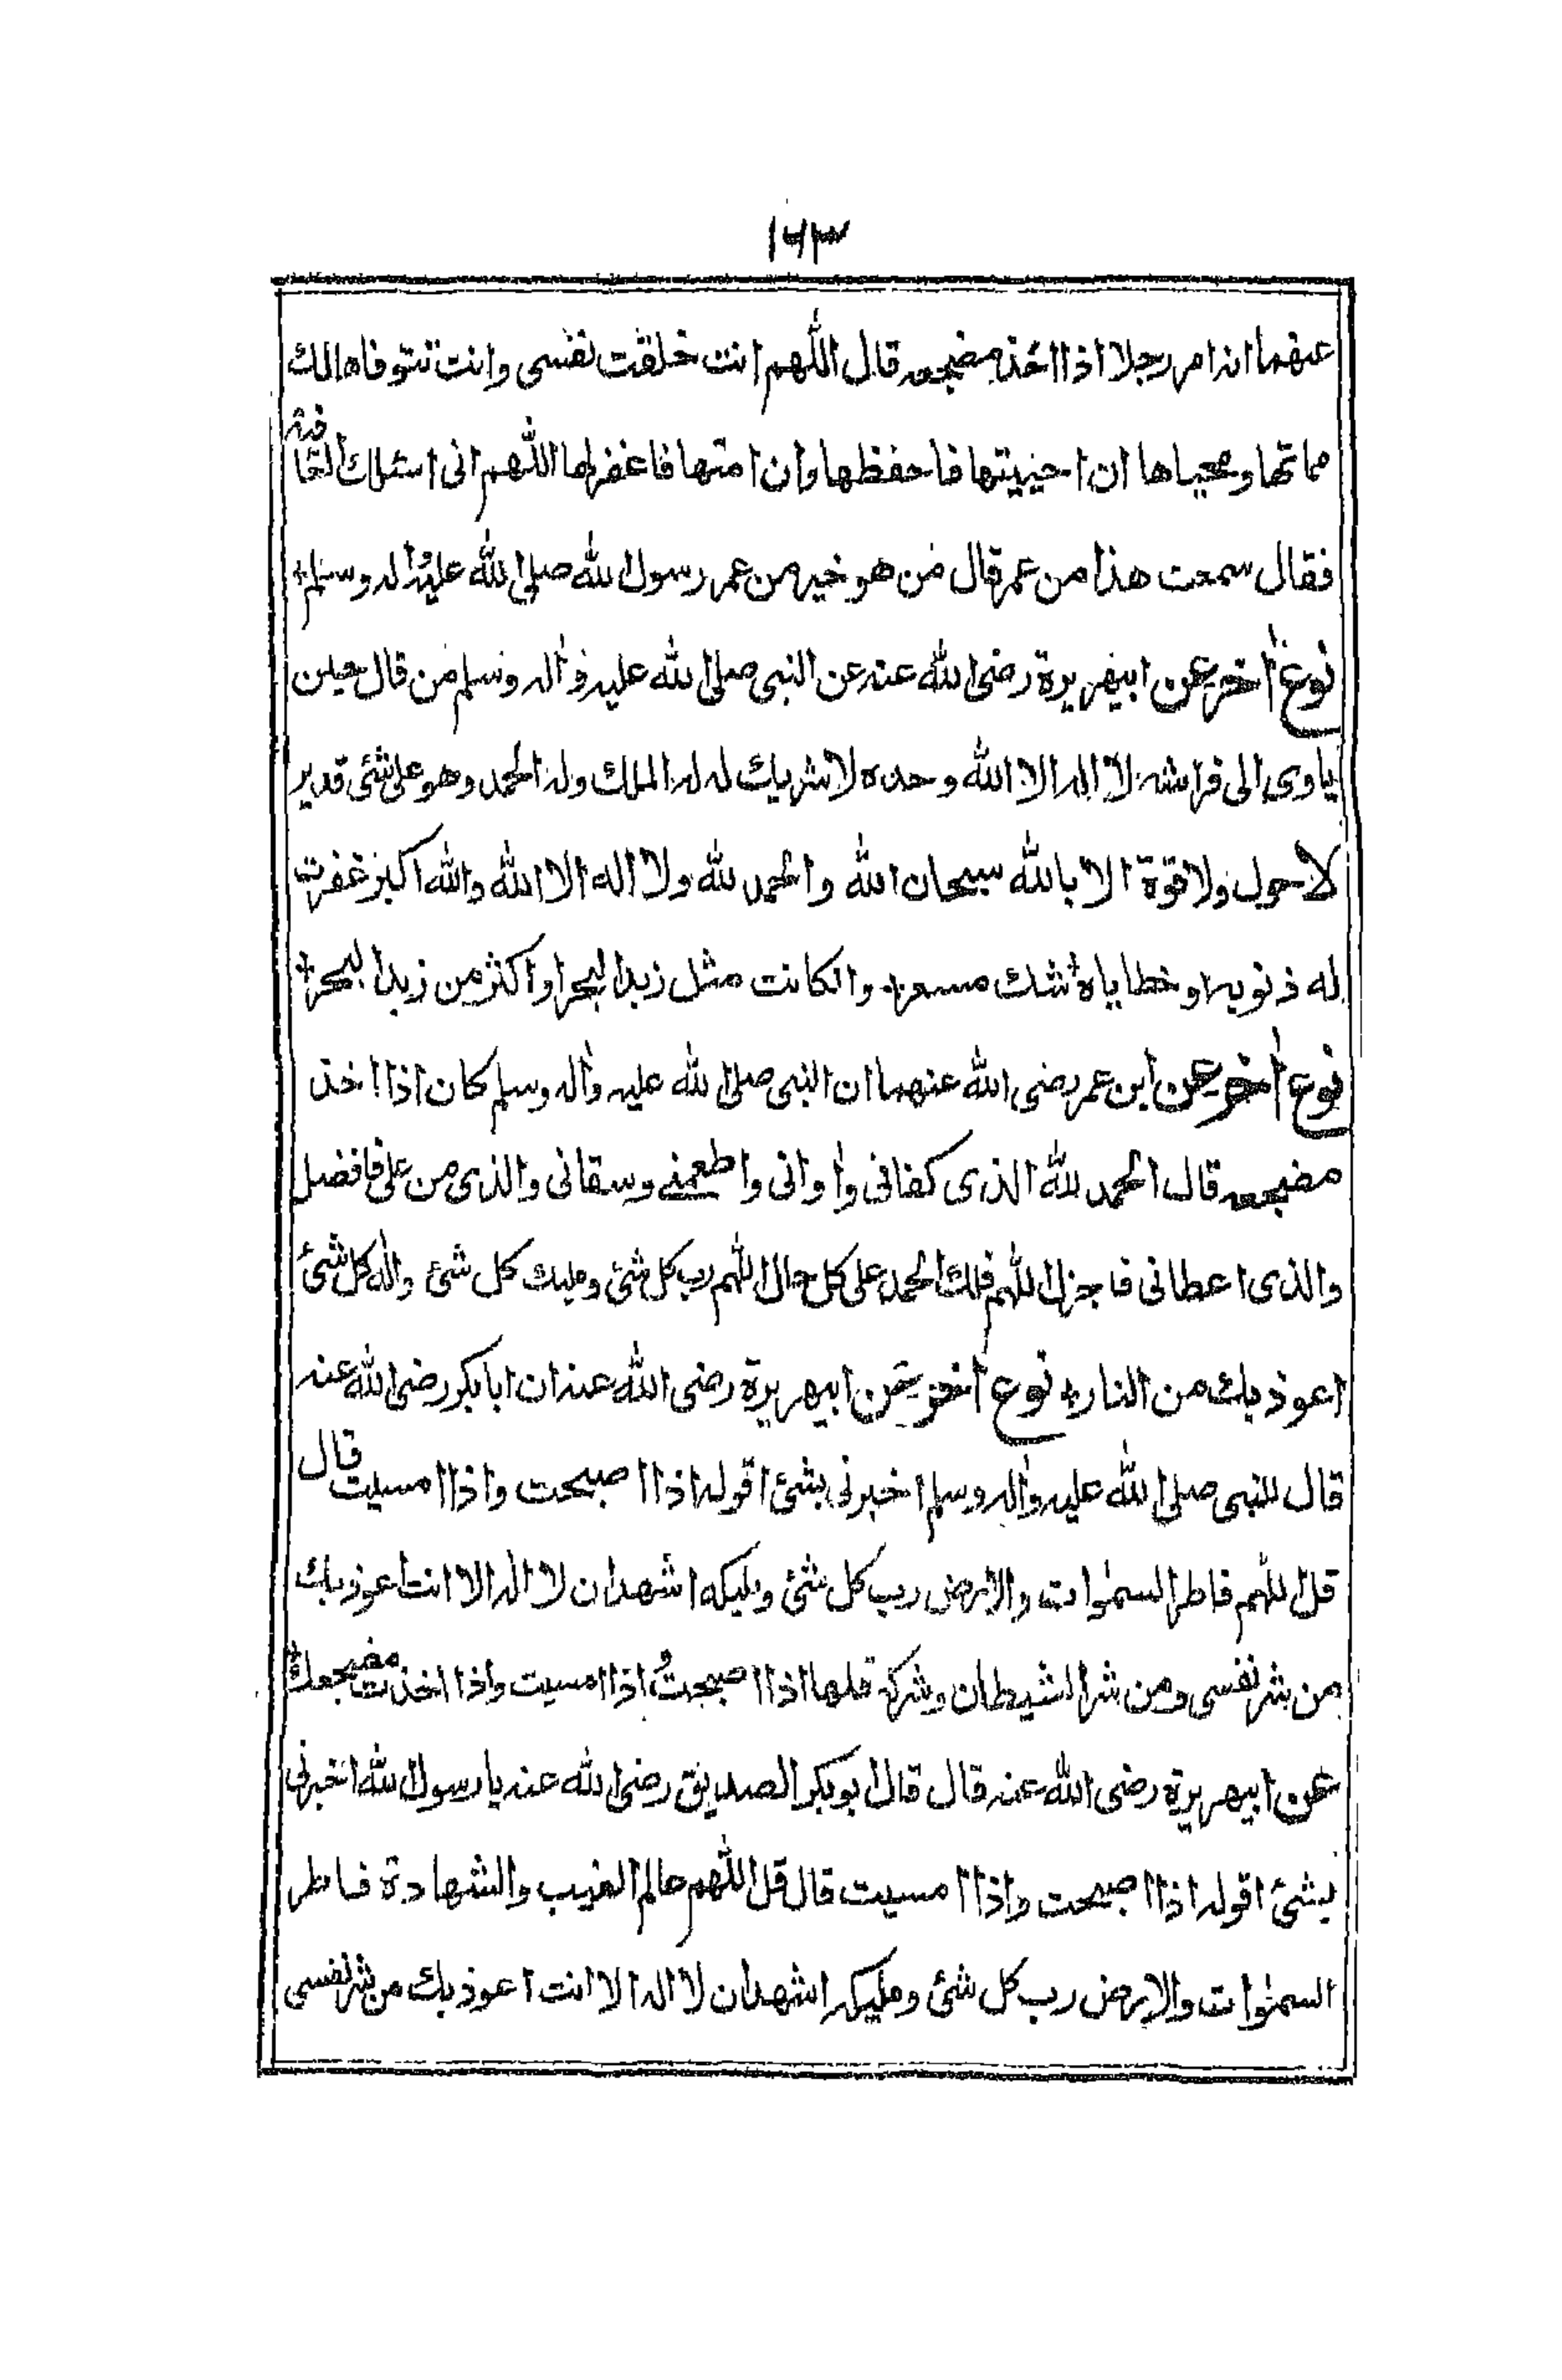 ۱۶۳
عنهما انه امر رجلا اذا اخذ مضجعه قال اللهم انت خلقت نفسى وانت تتوفاها لك
مماتها ومحياها ان احييتها فاحفظها وان امتها فاغفرلها اللهم انى اسئلك العافية
فقال سمعت هذا من عمر قال من هو خير من عمر رسول الله صلى الله عليه واله وسلم
نوع اخر عن ابيهريرة رضى الله عنه عن النبى صلى الله عليه واله وسلم من قال حين
ياوى الى فراشه لا اله الا الله وحده لا شريك له له الملك وله الحمد وهو على شئ قدير
لا حول ولا قوة الا بالله سبحان الله والحمد لله ولا اله الا الله والله اكبر غفرت
له ذنوبه او خطاياه شك مسعر وانكانت مثل زبد البحر او اكثر من زبد البحر
نوع اخر عن ابن عمر رضى الله عنهما ان النبى صلى الله عليه واله وسلم كان اذا اخذ
مضجعه قال الحمد لله الذى كفانى واوانى واطعمنے وسقانى والذى من على فافضل
والذى اعطانى فاجزل اللهم فلك الحمد على كل حال اللهم رب كل شئ ومليك كل شئ واله كل شئ
اعوذ بك من النار نوع اخر عن ابيهريرة رضى الله عنه ان ابا بكر رضى الله عنه
قال للنبى صلى الله عليه واله وسلم اخبرنى بشئ اقوله اذا اصبحت واذا امسيت قال
قل اللهم فاطر السموات والارض رب كل شئ ومليكه اشهد ان لا اله الا انت اعوذ بك
من شر نفسى ومن شر الشيطان وشركه قلها اذا اصبحت و اذا امسيت واذا اخذت مضجعك
عن ابيهريرة رضى الله عنه قال قال ابوبكر الصديق رضى الله عنه يا رسول الله اخبرنى
بشئ اقوله اذا اصبحت واذا امسيت قال قل اللهم عالم الغيب والشهادة فاطر
السموات والارض رب كل شئ ومليكه اشهد ان لا اله الا انت اعوذ بك من شر نفسى